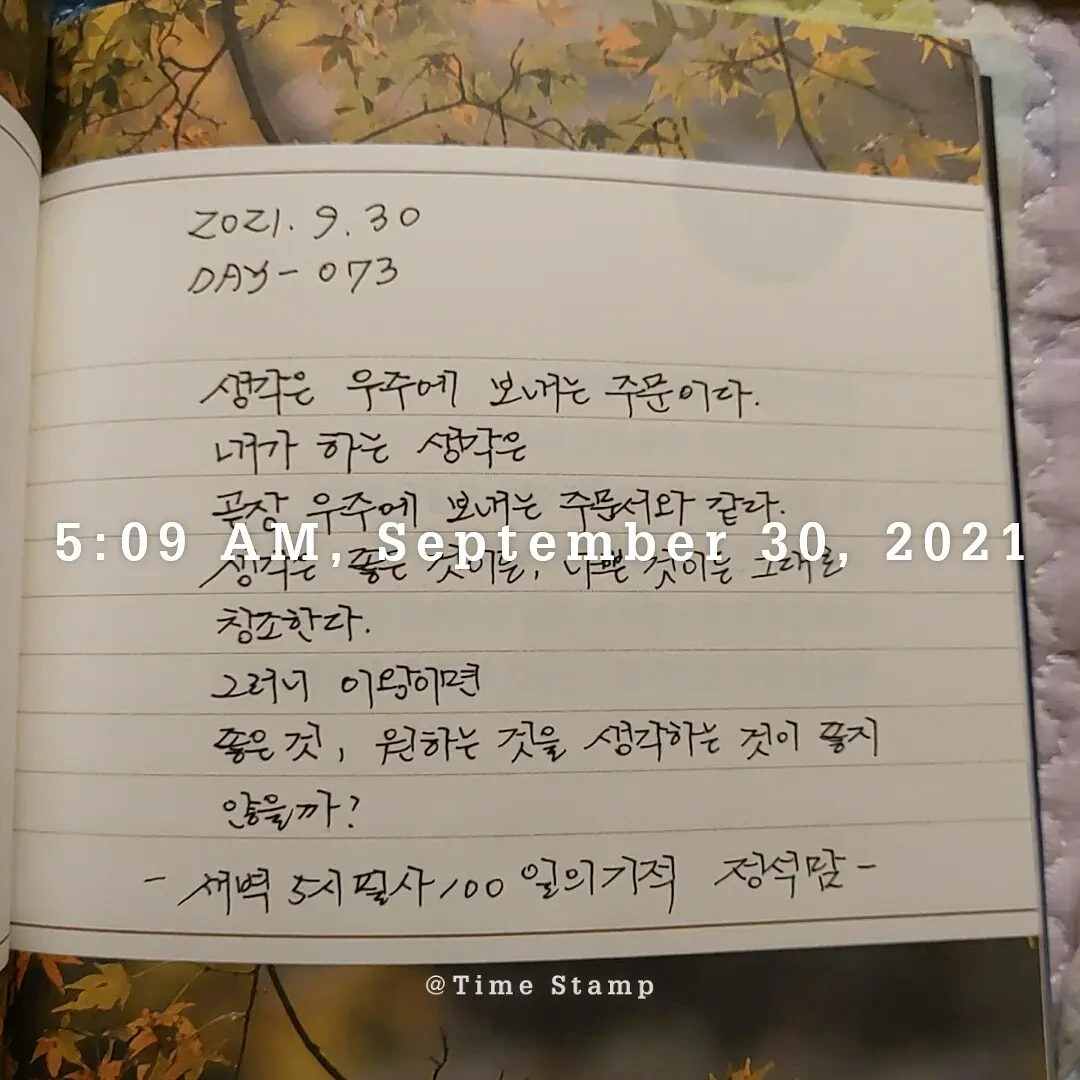 2021. 9. 30
DAY - 073
생각은 우주에 보내는 주문이다.
내가 하는 생각은
곧장 우주에 보내는 주문서와 같다.
5:09 AM, September 30, 2021
생각은 좋은 것이든, 나쁜 것이든 그대로
창조한다.
그러니 이왕이면
좋은 것, 원하는 것을 생각하는 것이 좋지
않을까?
- 새벽 5시 필사 100일의 기적 정석맘 -
@Time Stamp